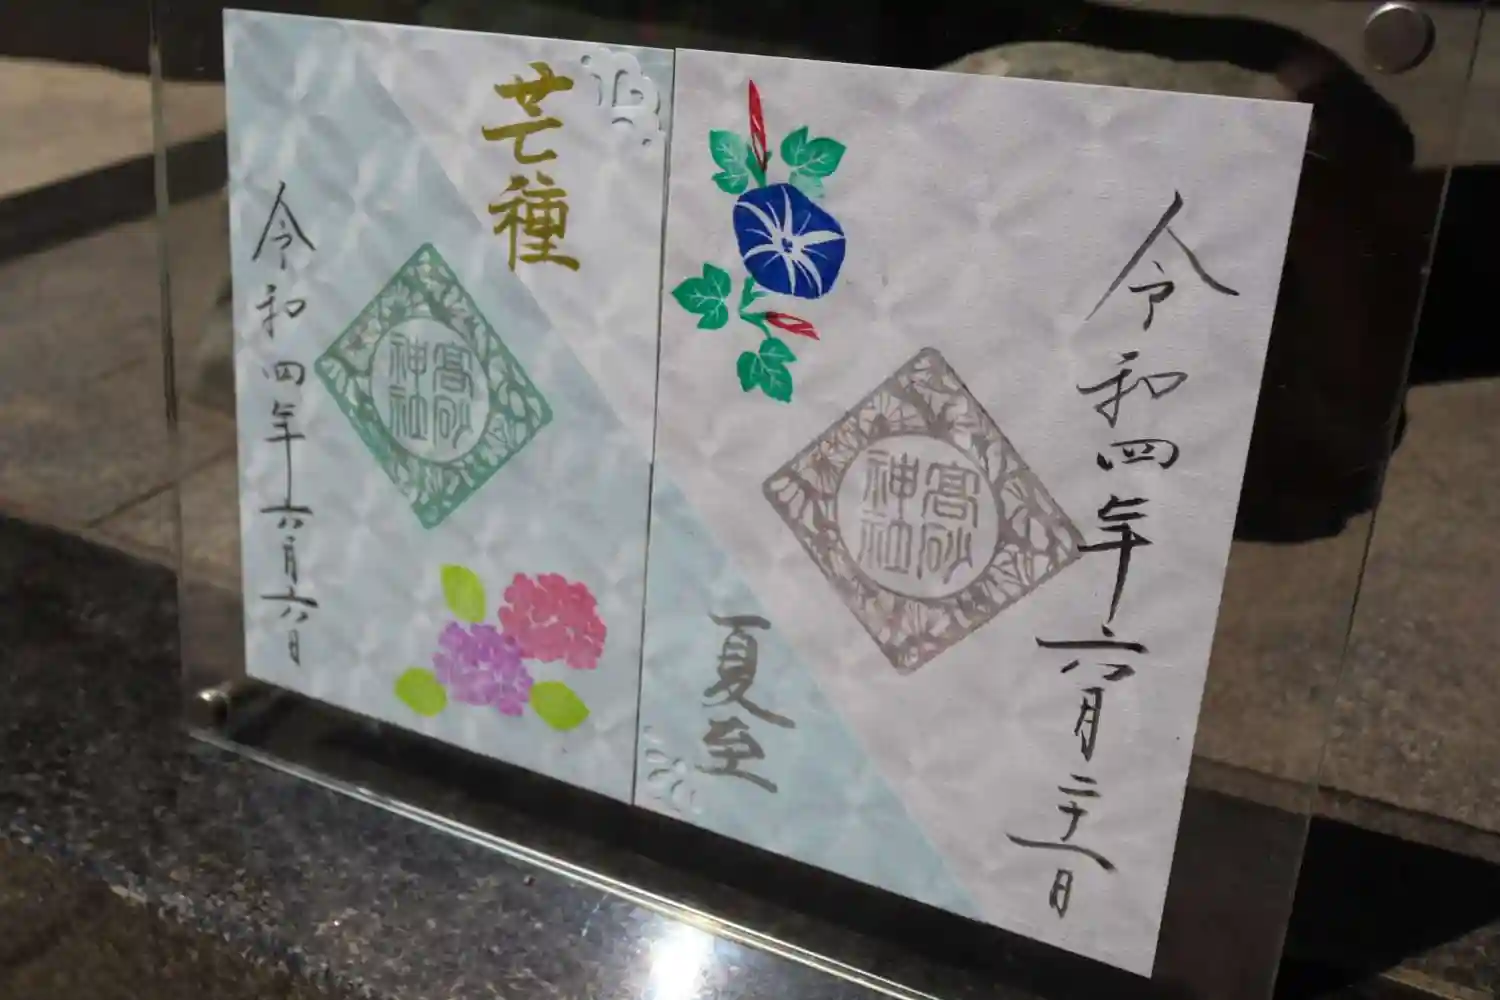 令和四年六月二十一日
高砂神社
夏至
芒種
高砂神社
令和四年六月六日